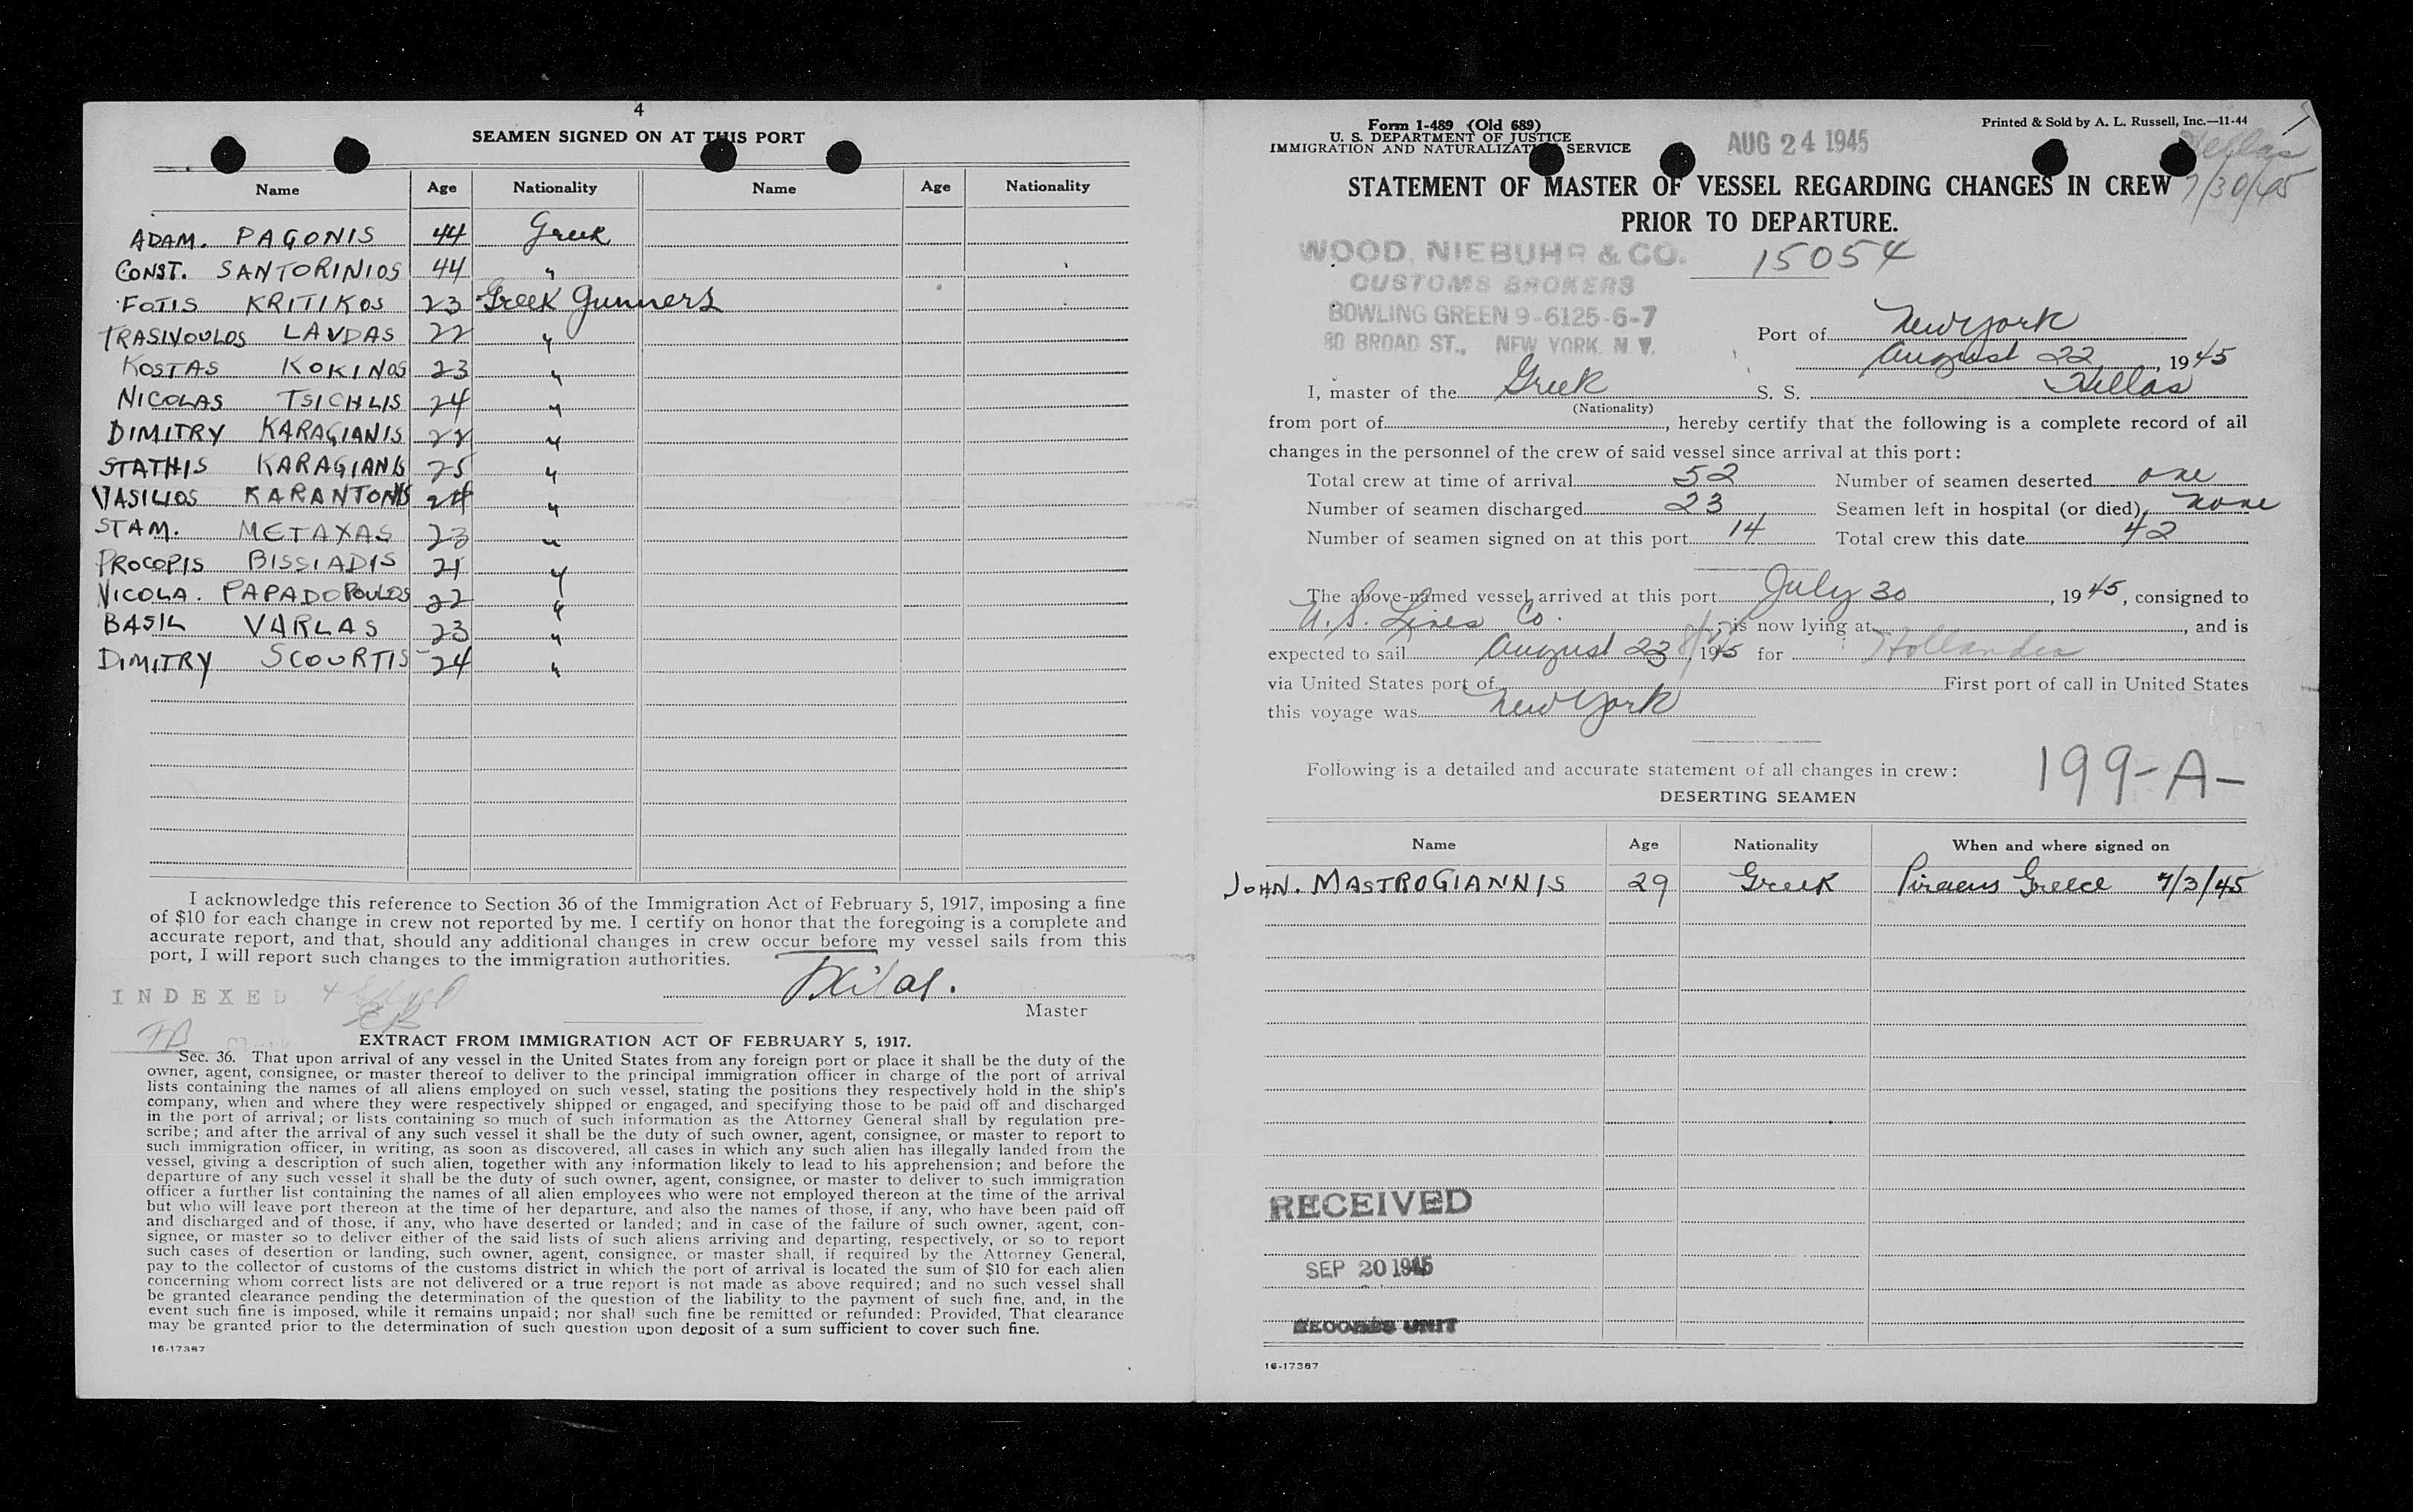 4
SEAMEN SIGNED ON AT THIS PORT
Name Age Nationality Name Age Nationality
ADAM. PAGONIS 44 Greek
CONST. SANTORINIOS 44 "
FOTIS KRITIKOS 23 Greek Gunners
TRASIVOULOS LAVDAS 22 "
KOSTAS KOKINOS 23 "
NICOLAS TSICHLIS 24 "
DIMITRY KARAGIANIS 22 "
STATHIS KARAGIANIS 25 "
VASILIOS KARANTONIS 24 "
STAM. METAXAS 23 "
PROCOPIS BISSIADIS 21 "
NICOLA. PAPADOPOULOS 22 "
BASIL VARLAS 23 "
DIMITRY SCOURTIS 24 "
I acknowledge this reference to Section 36 of the Immigration Act of February 5, 1917, imposing a fine
of $10 for each change in crew not reported by me. I certify on honor that the foregoing is a complete and
accurate report, and that, should any additional changes in crew occur before my vessel sails from this
port, I will report such changes to the immigration authorities.
INDEXED
Master
EXTRACT FROM IMMIGRATION ACT OF FEBRUARY 5, 1917.
Sec. 36. That upon arrival of any vessel in the United States from any foreign port or place it shall be the duty of the
owner, agent, consignee, or master thereof to deliver to the principal immigration officer in charge of the port of arrival
lists containing the names of all aliens employed on such vessel, stating the positions they respectively hold in the ship's
company, when and where they were respectively shipped or engaged, and specifying those to be paid off and discharged
in the port of arrival; or lists containing so much of such information as the Attorney General shall by regulation pre-
scribe; and after the arrival of any such vessel it shall be the duty of such owner, agent, consignee, or master to report to
such immigration officer, in writing, as soon as discovered, all cases in which any such alien has illegally landed from the
vessel, giving a description of such alien, together with any information likely to lead to his apprehension; and before the
departure of any such vessel it shall be the duty of such owner, agent, consignee, or master to deliver to such immigration
officer a further list containing the names of all alien employees who were not employed thereon at the time of the arrival
but who will leave port thereon at the time of her departure, and also the names of those, if any, who have been paid off
and discharged and of those, if any, who have deserted or landed; and in case of the failure of such owner, agent, con-
signee, or master so to deliver either of the said lists of such aliens arriving and departing, respectively, or so to report
such cases of desertion or landing, such owner, agent, consignee, or master shall, if required by the Attorney General,
pay to the collector of customs of the customs district in which the port of arrival is located the sum of $10 for each alien
concerning whom correct lists are not delivered or a true report is not made as above required; and no such vessel shall
be granted clearance pending the determination of the question of the liability to the payment of such fine, and, in the
event such fine is imposed, while it remains unpaid; nor shall such fine be remitted or refunded: Provided, That clearance
may be granted prior to the determination of such question upon deposit of a sum sufficient to cover such fine.
16-17387
Form 1-489 (Old 689)
U. S. DEPARTMENT OF JUSTICE
IMMIGRATION AND NATURALIZATION SERVICE
AUG 24 1945
Printed & Sold by A. L. Russell, Inc.—11-44
Hellas
7/30/45
STATEMENT OF MASTER OF VESSEL REGARDING CHANGES IN CREW
PRIOR TO DEPARTURE.
WOOD, NIEBUHR & CO.
CUSTOMS BROKERS
BOWLING GREEN 9-6125-6-7
80 BROAD ST., NEW YORK, N. Y.
15054
Port of New York
August 22, 1945
I, master of the Greek S. S. Hellas
(Nationality)
from port of , hereby certify that the following is a complete record of all
changes in the personnel of the crew of said vessel since arrival at this port:
Total crew at time of arrival 52 Number of seamen deserted one
Number of seamen discharged 23 Seamen left in hospital (or died) none
Number of seamen signed on at this port 14 Total crew this date 42
The above-named vessel arrived at this port July 30, 1945, consigned to
U. S. Lines Co. ; is now lying at , and is
expected to sail August 23, 1945 for
via United States port of First port of call in United States
this voyage was New York
Following is a detailed and accurate statement of all changes in crew:
199-A-
DESERTING SEAMEN
Name Age Nationality When and where signed on
JOHN. MASTROGIANNIS 29 Greek Piraeus Greece 7/3/45
RECEIVED
SEP 20 1945
RECORDS UNIT
16-17387